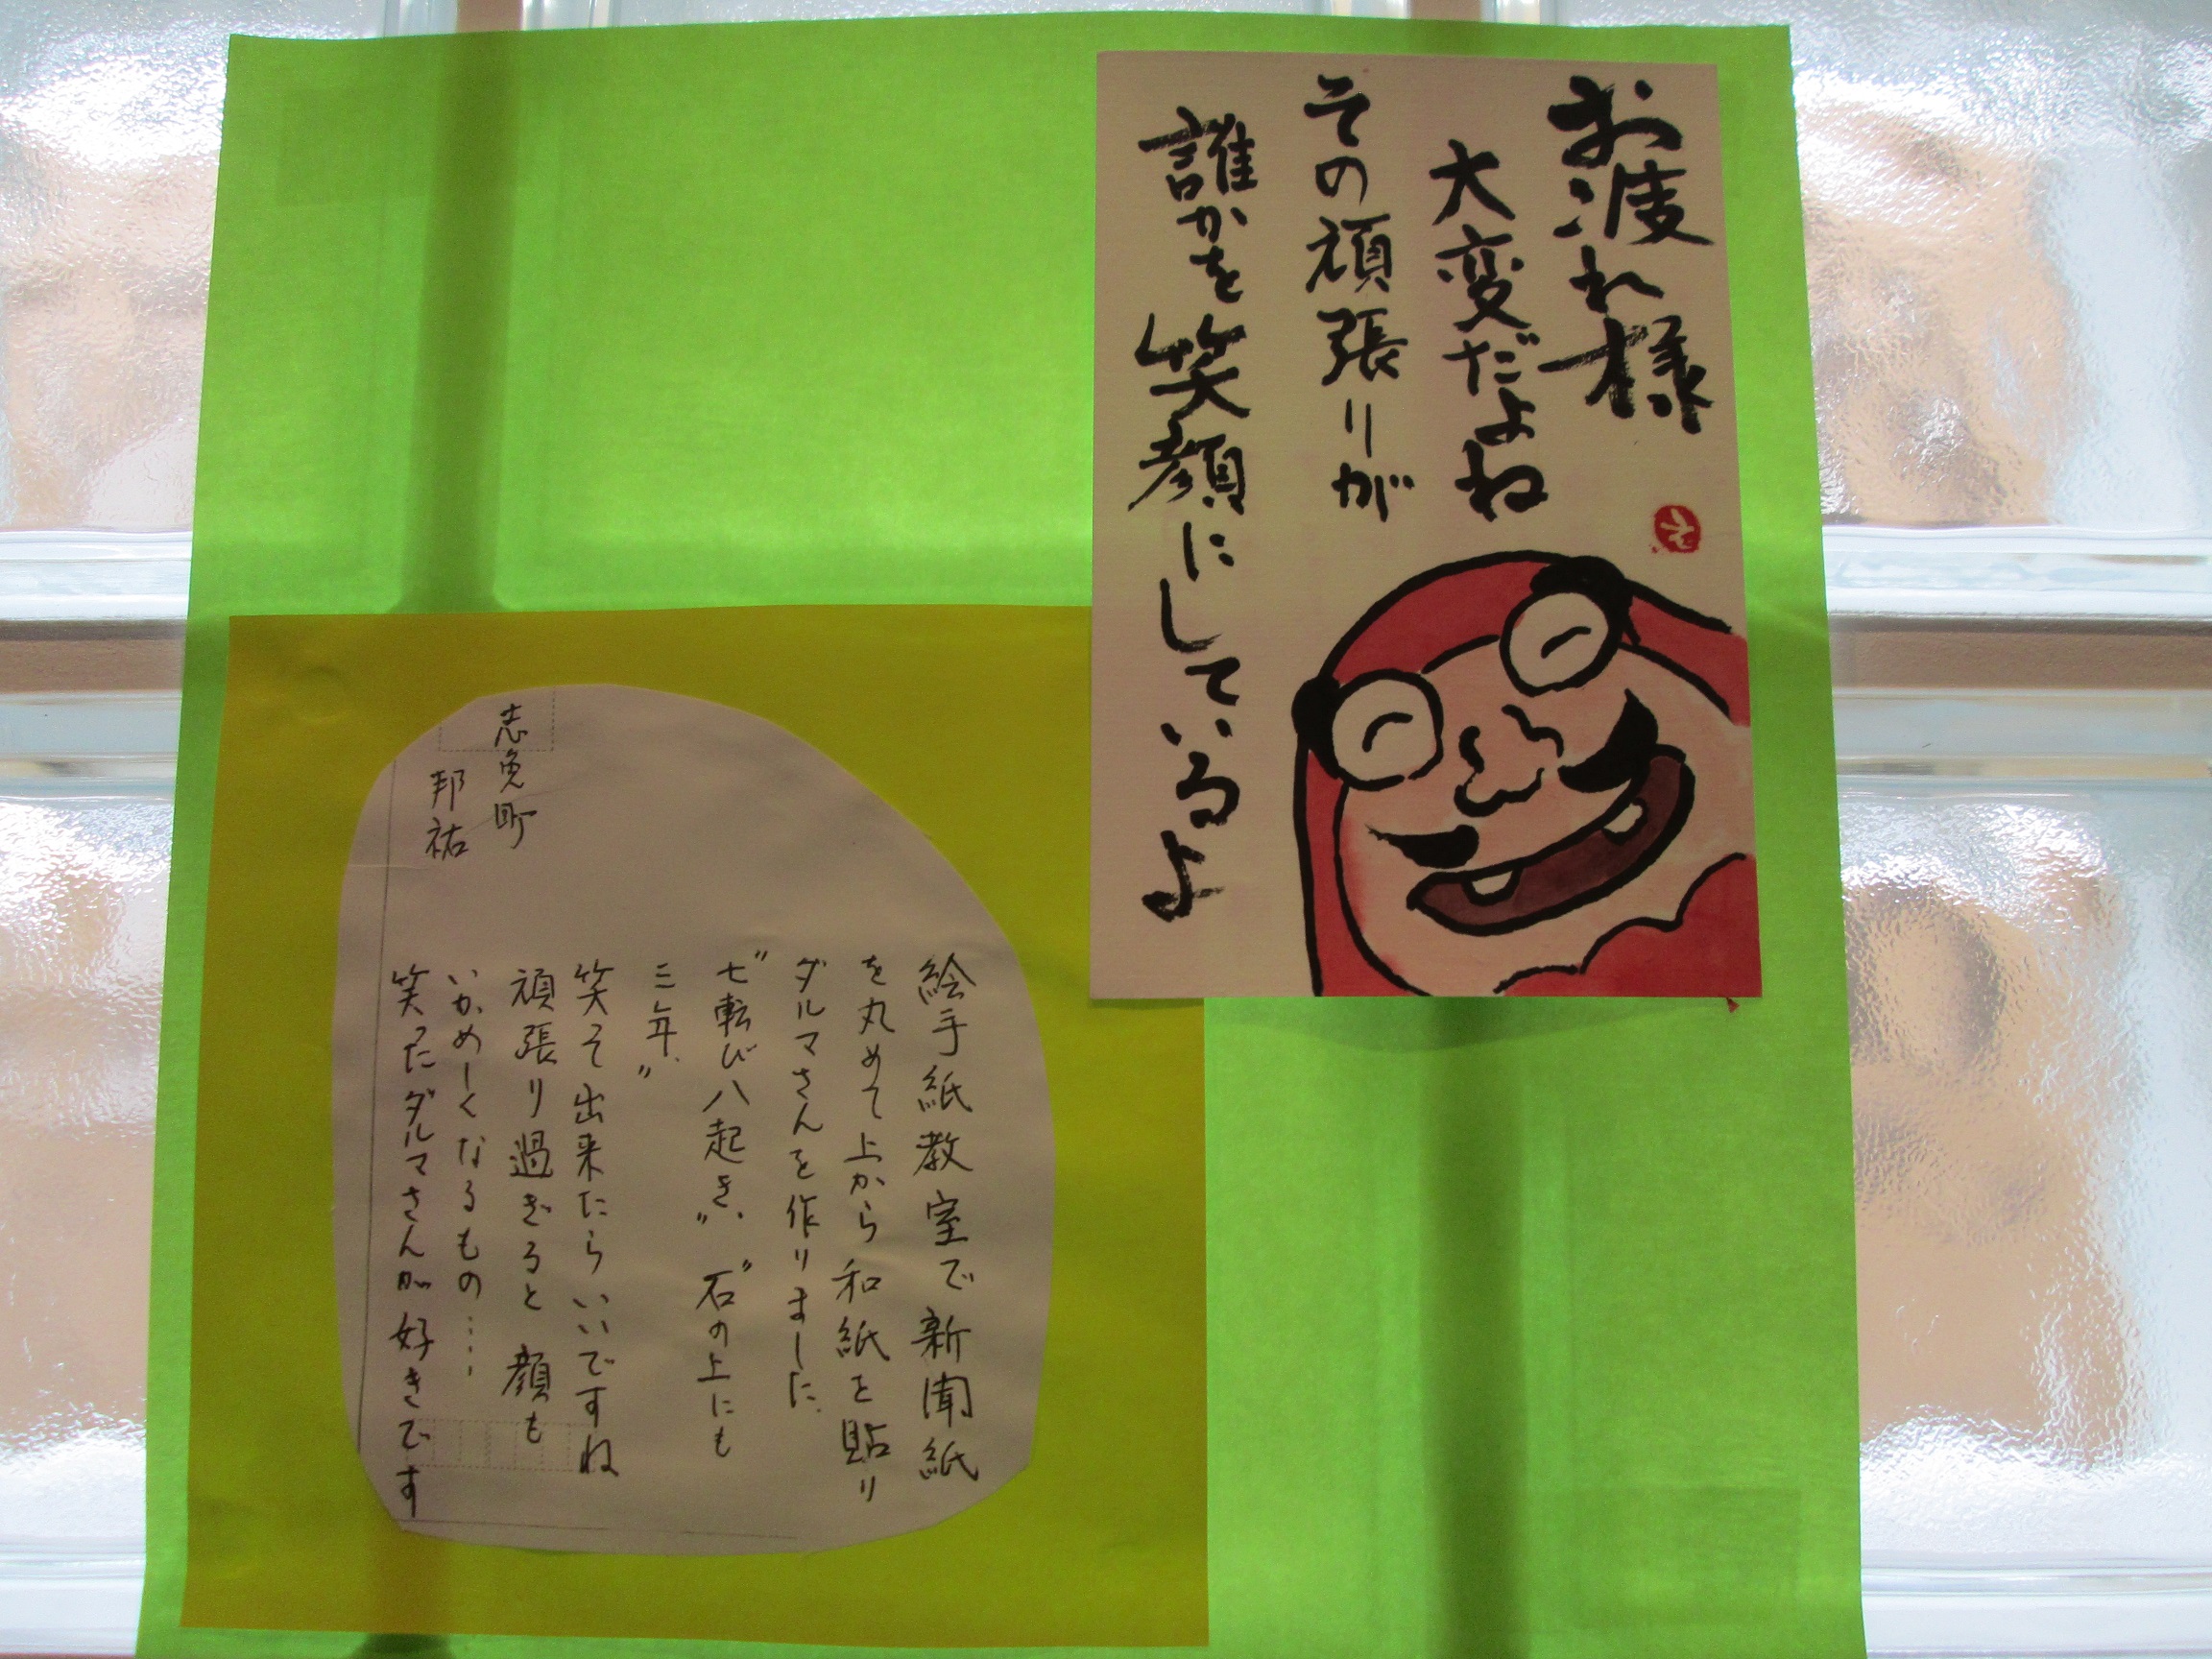 お疲れ様
大変だよね
その頑張りが
誰かを笑顔にしているよ
絵手紙教室で新聞紙
を丸めて上から和紙を貼り
ダルマさんを作りました.
"七転び八起き、" "石の上にも
三年、"
笑そ出来たらいいですね
頑張り過ぎると顔も
いかめーくなるもの……
笑ったダルマさんが好きです
志免町
邦祐